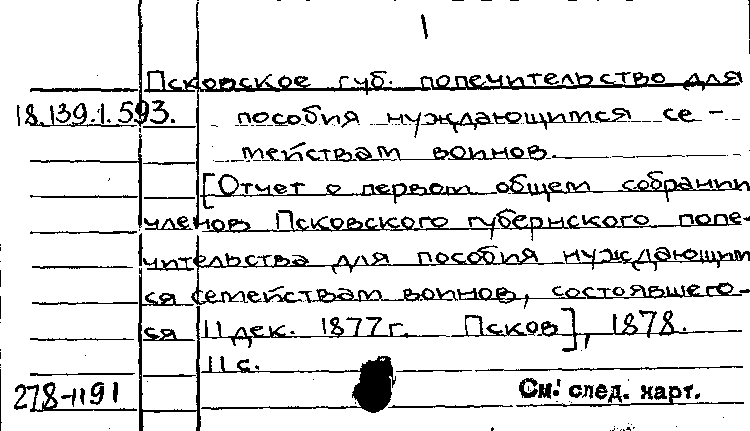 1
Псковское губ. попечительство для
18.139.1.593.
пособия нуждающимся се-
мействам воинов.
[Отчет о первом общем собрании
членов Псковского губернского попе-
чительства для пособия нуждающим
ся семействам воинов, состоявшего-
ся 11 дек. 1877 г. Псков], 1878.
11 с.
278-1191
См. след. карт.